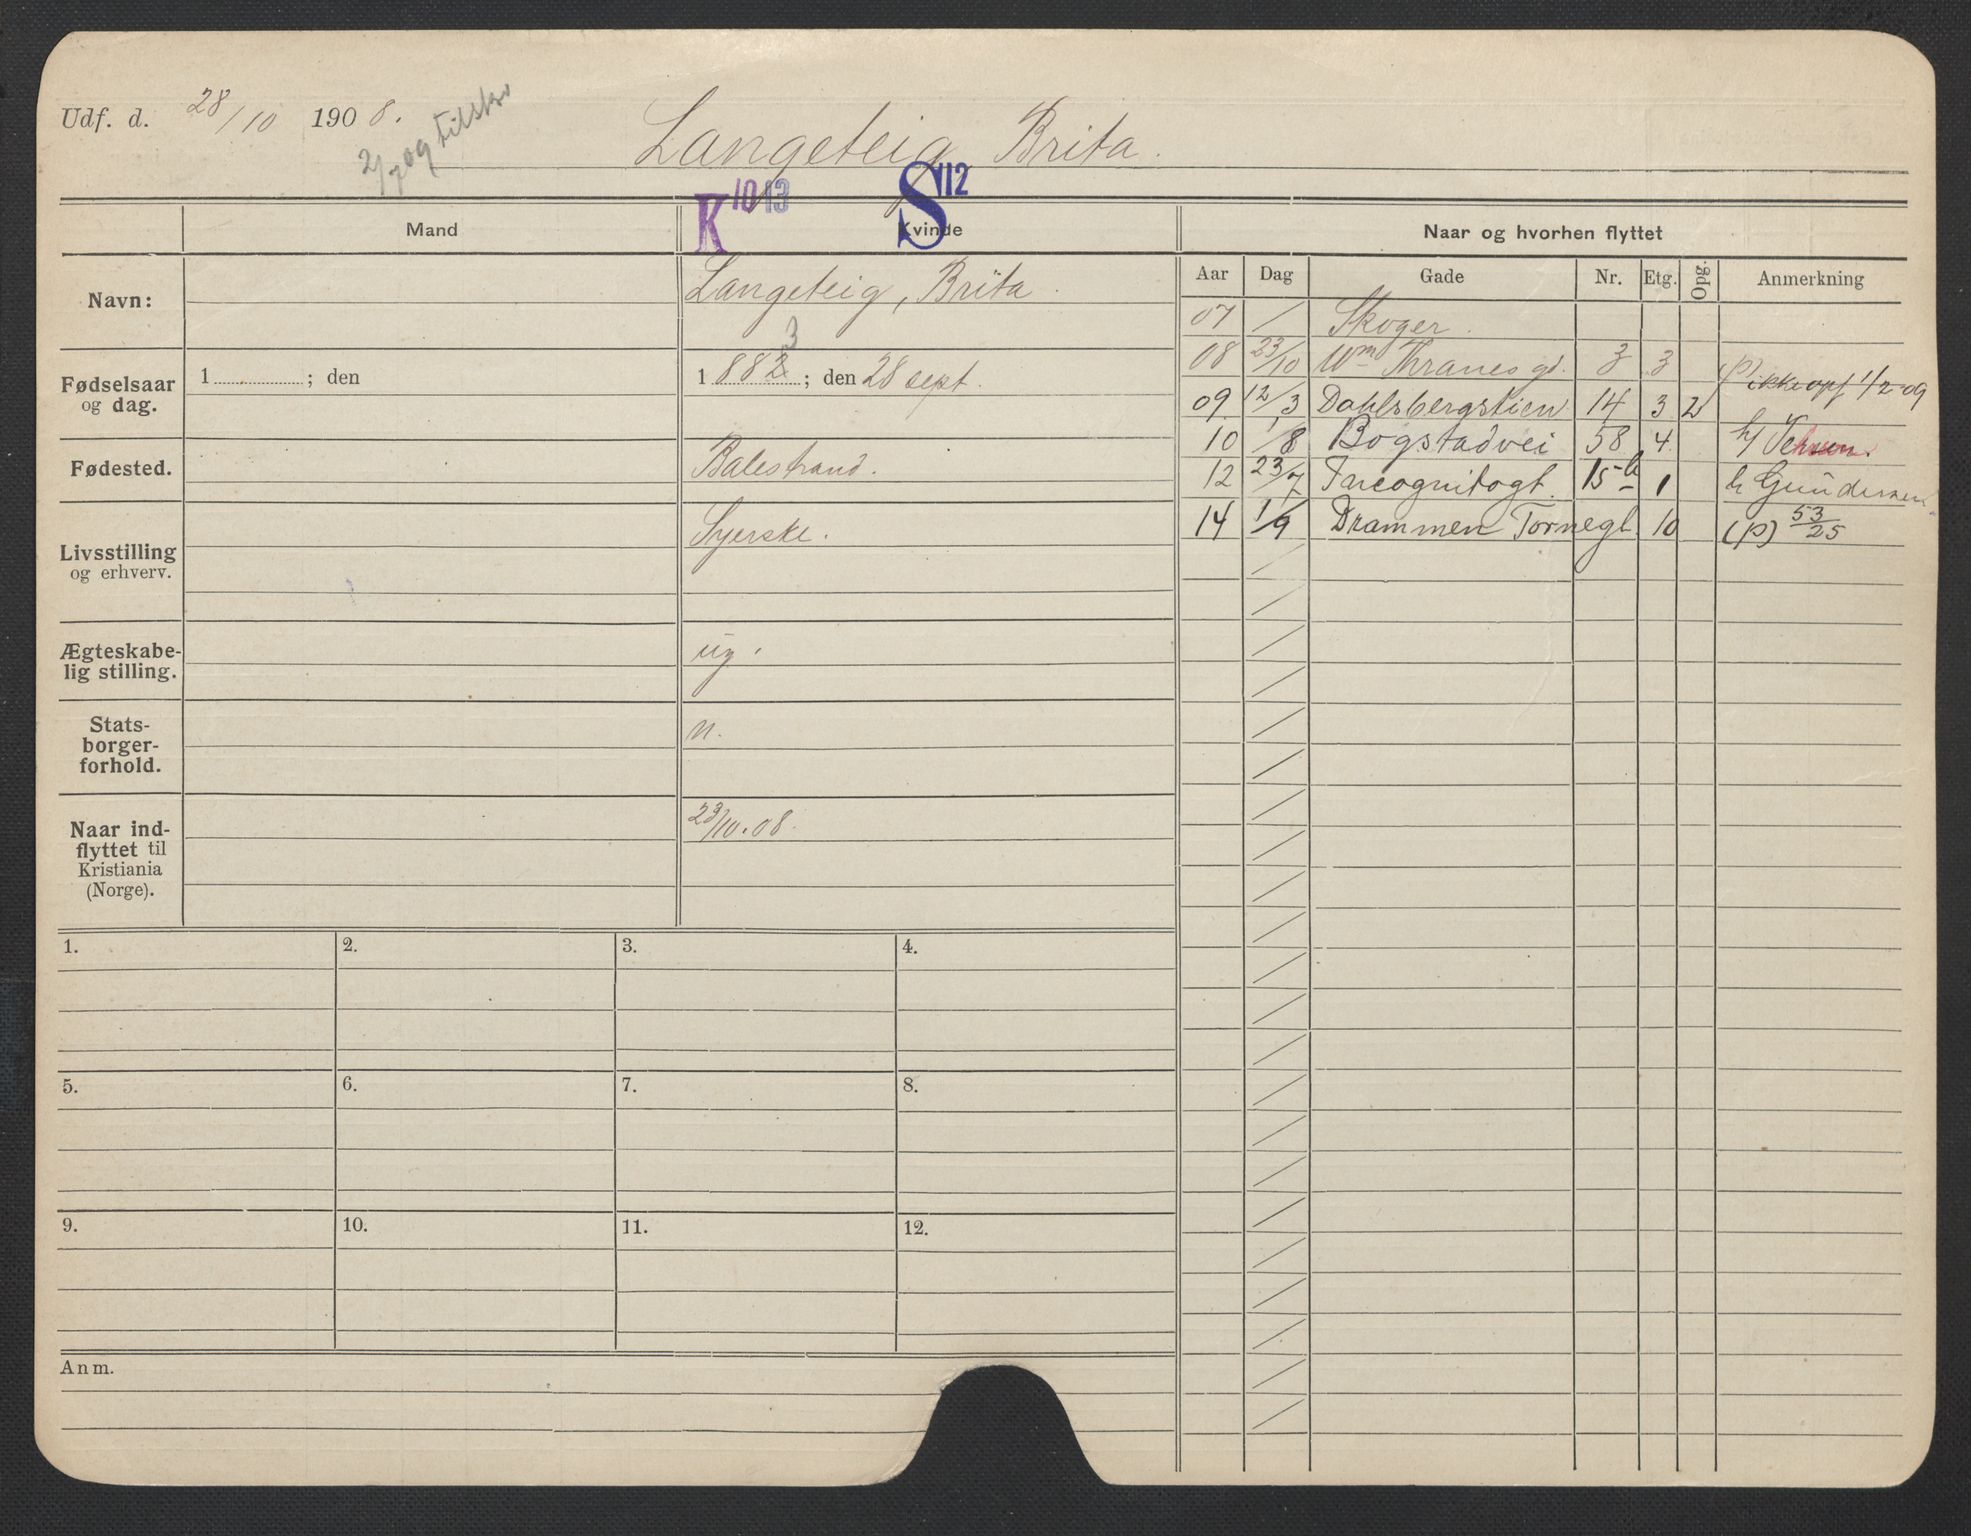 Udf. d. 28/10 1908.
2/7 09 tilskr
Langeteig Brita.
K 10 13
S 12
Mand
Kvinde
Naar og hvorhen flyttet
Aar Dag Gade Nr. Etg. Opg. Anmerkning
Navn: Langeteig, Brita.
Fødselsaar og dag. 1 ; den
1 882 3 ; den 28 sept.
Fødested. Balestrand.
Livsstilling og erhverv. Syerske.
Ægteskabe-
lig stilling. ug.
Stats-
borger-
forhold. n.
Naar ind-
flyttet til
Kristiania
(Norge). 23/10.08.
07 / Skoger.
08 23/10 Wm Thranes gd. 3 3 (p) ikke opf 1/2 09
09 12/3 Dahlsbergstien 14 3 2
10 1/8 Bogstadvei 58 4 h/ Jensen.
12 23/7 Incognitogt. 15 b 1 h Gundersen
14 1/9 Drammen Tornegt. 10 (p) 53/25
1. 2. 3. 4.
5. 6. 7. 8.
9. 10. 11. 12.
Anm.